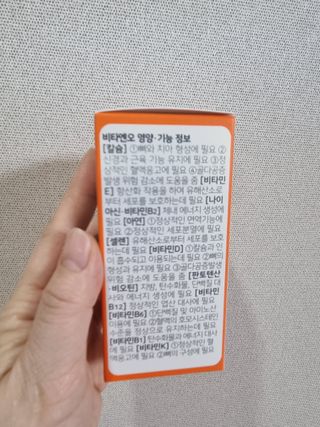 비타앤오 영양·기능 정보
[칼슘] ①뼈와 치아 형성에 필요 ②
신경과 근육 기능 유지에 필요 ③정
상적인 혈액응고에 필요 ④골다공증
발생 위험 감소에 도움을 줌 [비타민
E] 항산화 작용을 하여 유해산소로
부터 세포를 보호하는데 필요 [나이
아신·비타민B2] 체내 에너지 생성에
필요 [아연] ①정상적인 면역기능에
필요 ②정상적인 세포분열에 필요
[셀렌] 유해산소로부터 세포를 보호
하는데 필요 [비타민D] ①칼슘과 인
이 흡수되고 이용되는데 필요 ②뼈의
형성과 유지에 필요 ③골다공증발생
위험 감소에 도움을 줌 [판토텐산
·비오틴] 지방, 탄수화물, 단백질 대
사와 에너지 생성에 필요 [비타민
B12] 정상적인 엽산 대사에 필요
[비타민B6] ①단백질 및 아미노산
이용에 필요 ②혈액의 호모시스테인
수준을 정상으로 유지하는데 필요
[비타민B1] 탄수화물과 에너지 대사
에 필요 [비타민K] ①정상적인 혈
액응고에 필요 ②뼈의 구성에 필요